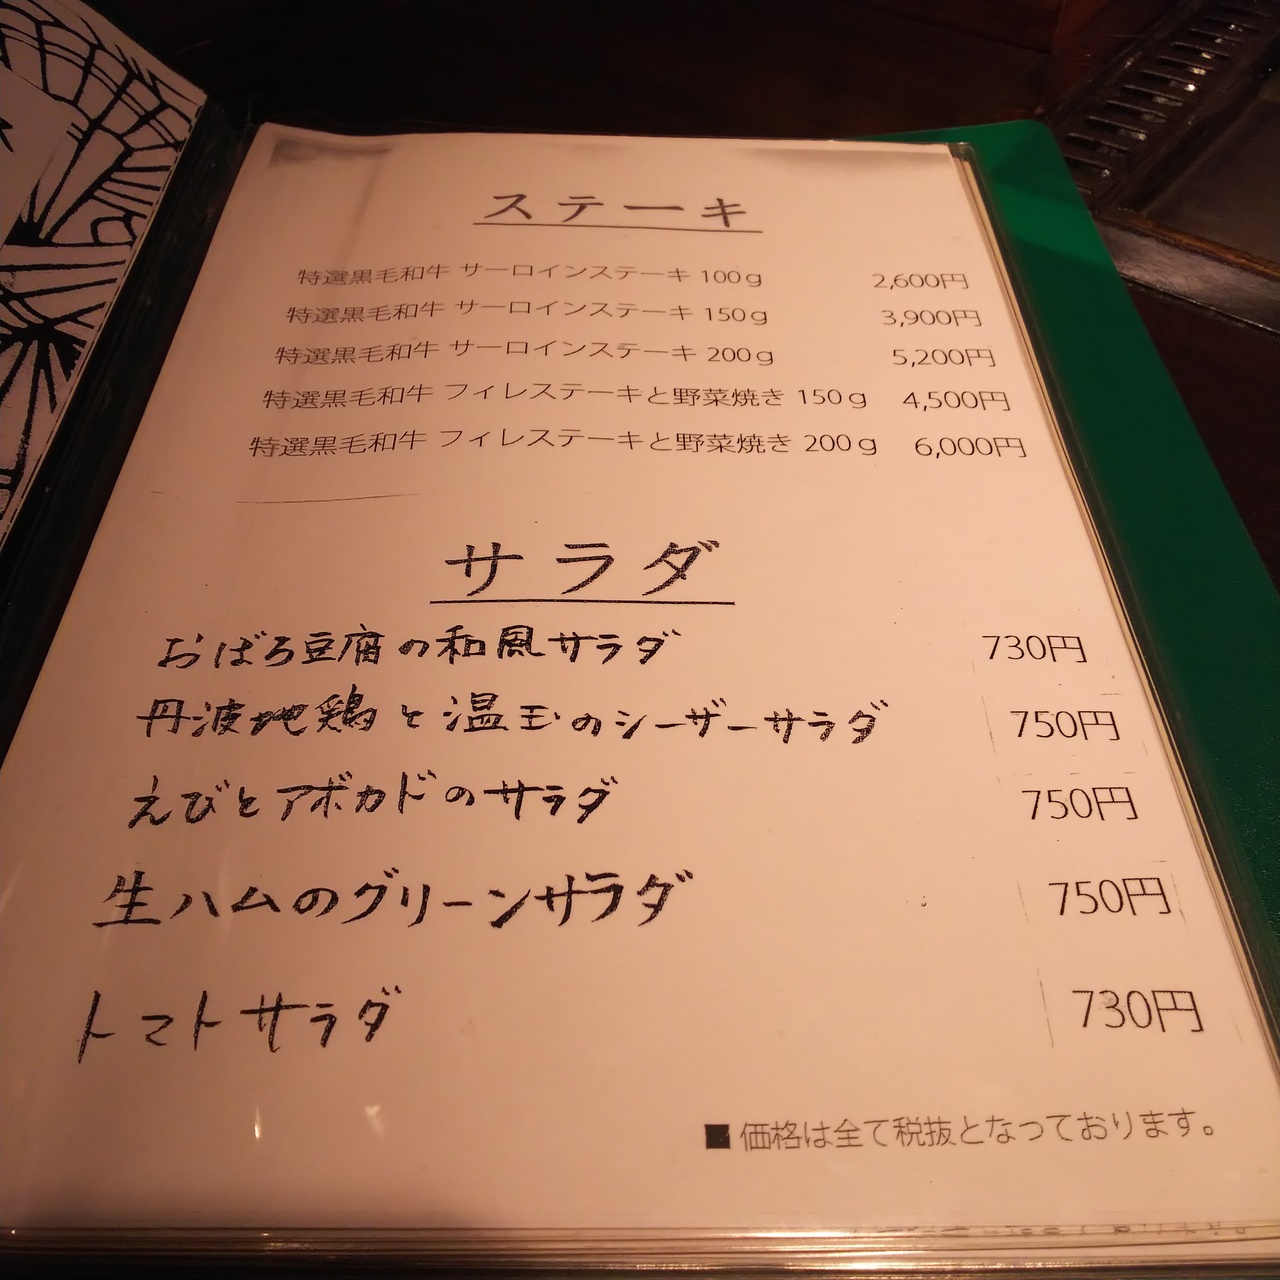 ステーキ
特選黒毛和牛 サーロインステーキ 100g 2,600円
特選黒毛和牛 サーロインステーキ 150g 3,900円
特選黒毛和牛 サーロインステーキ 200g 5,200円
特選黒毛和牛 フィレステーキと野菜焼き 150g 4,500円
特選黒毛和牛 フィレステーキと野菜焼き 200g 6,000円
サラダ
おぼろ豆腐の和風サラダ 730円
丹波地鶏と温玉のシーザーサラダ 750円
えびとアボカドのサラダ 750円
生ハムのグリーンサラダ 750円
トマトサラダ 730円
■価格は全て税抜となっております。